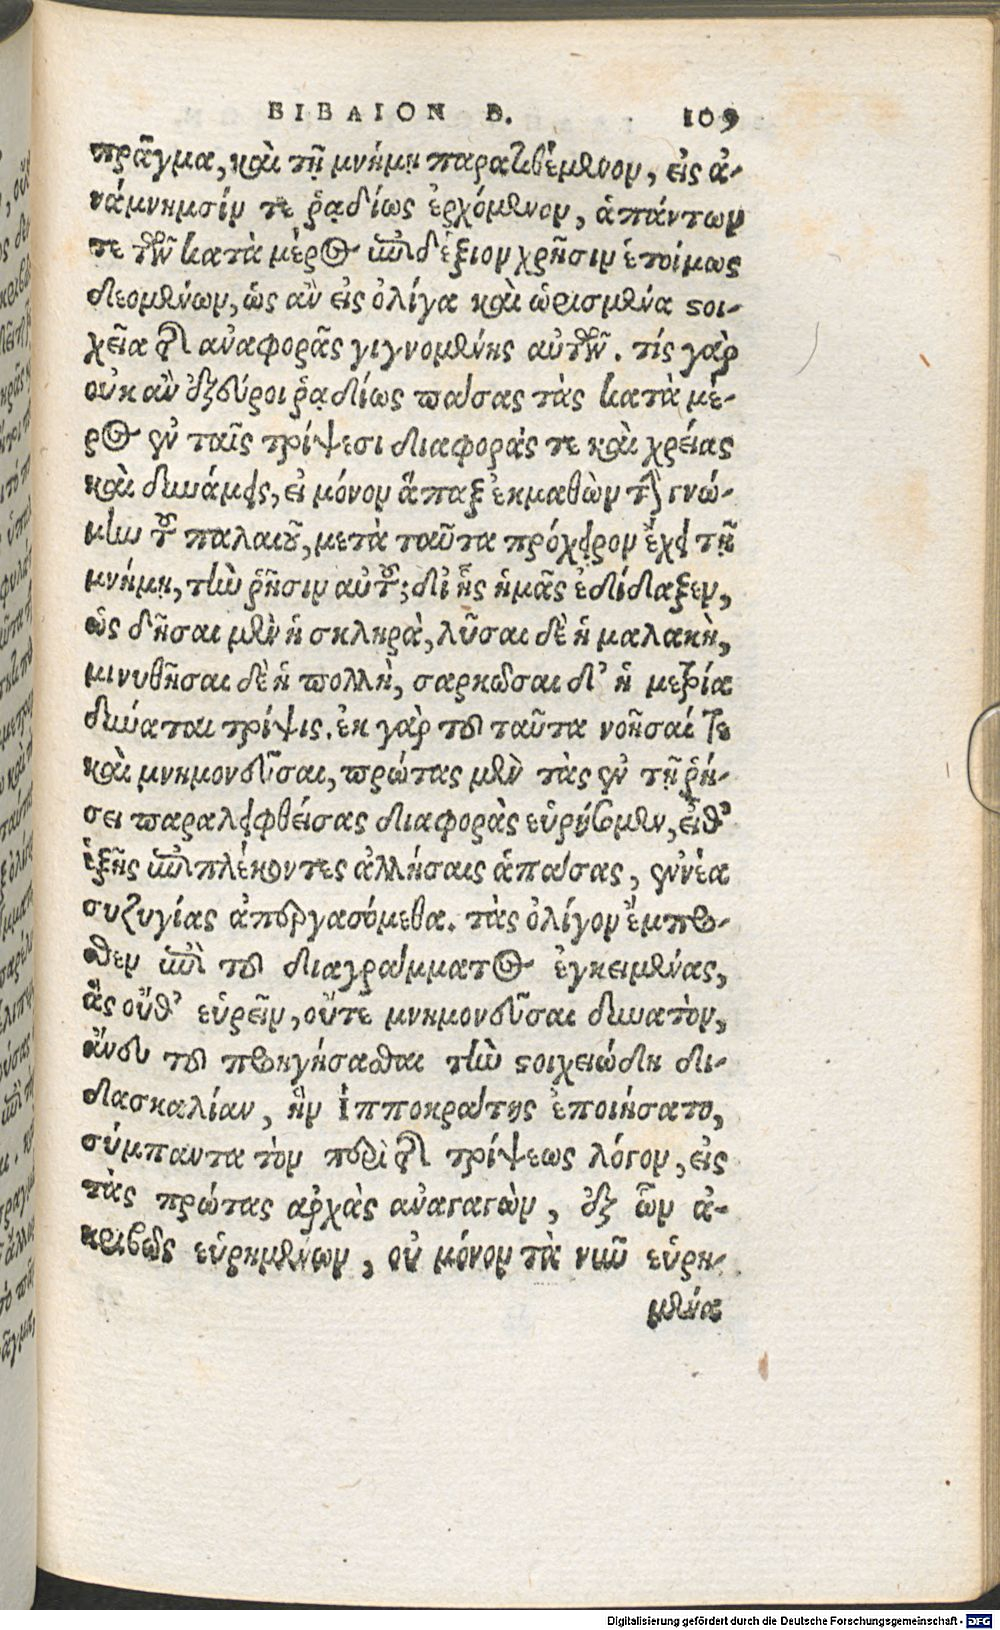 ΒΙΒΛΙΟΝ Β. 109
πρᾶγμα, καὶ τῇ μνήμῃ παρατιθέμενον, εἰς ἀ-
νάμνησίν τε ῥᾳδίως ἐρχόμενον, ἁπάντων
τε τῶν κατὰ μέρος ἐπιδέξιον χρῆσιν ἑτοίμως
δεομένων, ὡς ἂν εἰς ὀλίγα καὶ ὡρισμένα στοι-
χεῖα τῆς ἀναφορᾶς γιγνομένης αὐτῶν. τίς γὰρ
οὐκ ἂν ἐξεύροι ῥᾳδίως πάσας τὰς κατὰ μέ-
ρος ἐν ταῖς τρίψεσι διαφοράς τε καὶ χρείας
καὶ δυνάμεις, εἰ μόνον ἅπαξ ἐκμαθὼν τὴν γνώ-
μην τοῦ παλαιοῦ, μετὰ ταῦτα πρόχειρον ἔχει τῇ
μνήμῃ, τὴν ῥῆσιν αὐτοῦ; δι ἧς ἡμᾶς ἐδίδαξεν,
ὡς δῆσαι μὲν ἡ σκληρὰ, λῦσαι δὲ ἡ μαλακὴ,
μινυθῆσαι δὲ ἡ πολλὴ, σαρκῶσαι δ’ ἡ μετρία
δύναται τρίψις. ἐκ γὰρ τοῦ ταῦτα νοῆσαί τε
καὶ μνημονεῦσαι, πρώτας μὲν τὰς ἐν τῇ ῥή-
σει παραλειφθείσας διαφορὰς εὑρήσομεν, εἶθ’
ἑξῆς ἐπιπλέκοντες ἀλλήλαις ἁπάσας, ἐννέα
συζυγίας ἀπεργασόμεθα. τὰς ὀλίγον ἔμπρο-
σθεν ἐπὶ τοῦ διαγράμματος ἐγκειμένας,
ἃς οὔθ’ εὑρεῖν, οὔτε μνημονεῦσαι δυνατὸν,
ἄνευ τοῦ προηγήσασθαι τὴν στοιχειώδη δι-
δασκαλίαν, ἣν Ἱπποκράτης ἐποιήσατο,
σύμπαντα τὸν περὶ τῆς τρίψεως λόγον, εἰς
τὰς πρώτας ἀρχὰς ἀναγαγὼν, ἐξ ὧν ἀ-
κριβῶς εὑρημένων, οὐ μόνον τὰ νῦν εὑρη-
μένα
Digitalisierung gefördert durch die Deutsche Forschungsgemeinschaft - DFG